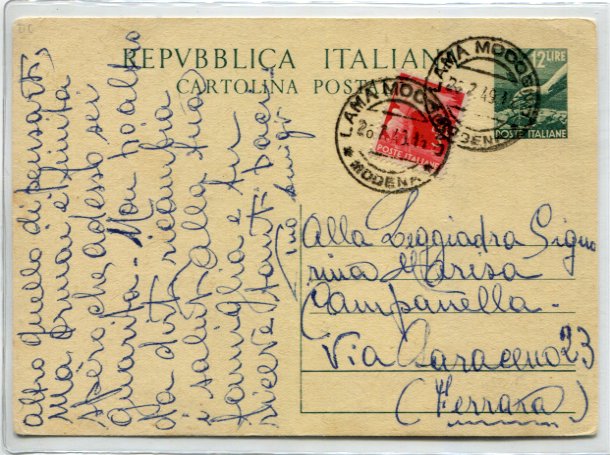 REPVBBLICA ITALIANA
CARTOLINA POSTALE
12 LIRE
POSTE ITALIANE
LAMA MOCOGNO
26.2.49.17
MODENA
LAMA MOCOGNO
26.2.49.17
* MODENA *
POSTE ITALIANE
Alla Leggiadra Signo
rina Marisa
Campanella.
Via Saraceno 23
(Ferrara)
altro quello di pensarti,
Ma ormai è finita
spero che adesso sei
guarita. Non ho altro
da dirti ricambia
i saluti alla tua
famiglia e tu
ricevi tanti baci